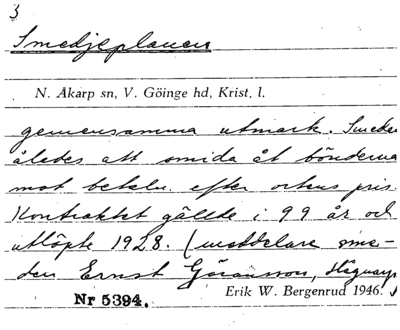 3
Smedjeplanen
N. Åkarp sn, V. Göinge hd, Krist. l.
gemensamma utmark. Smeden
ålades att smida åt bönderna
mot betaln. efter ortens pris.
Kontraktet gällde i 99 år och
utlöpte 1928. (meddelare sme-
den Ernst Göransson,
Nr 5394. Erik W. Bergenrud 1946.